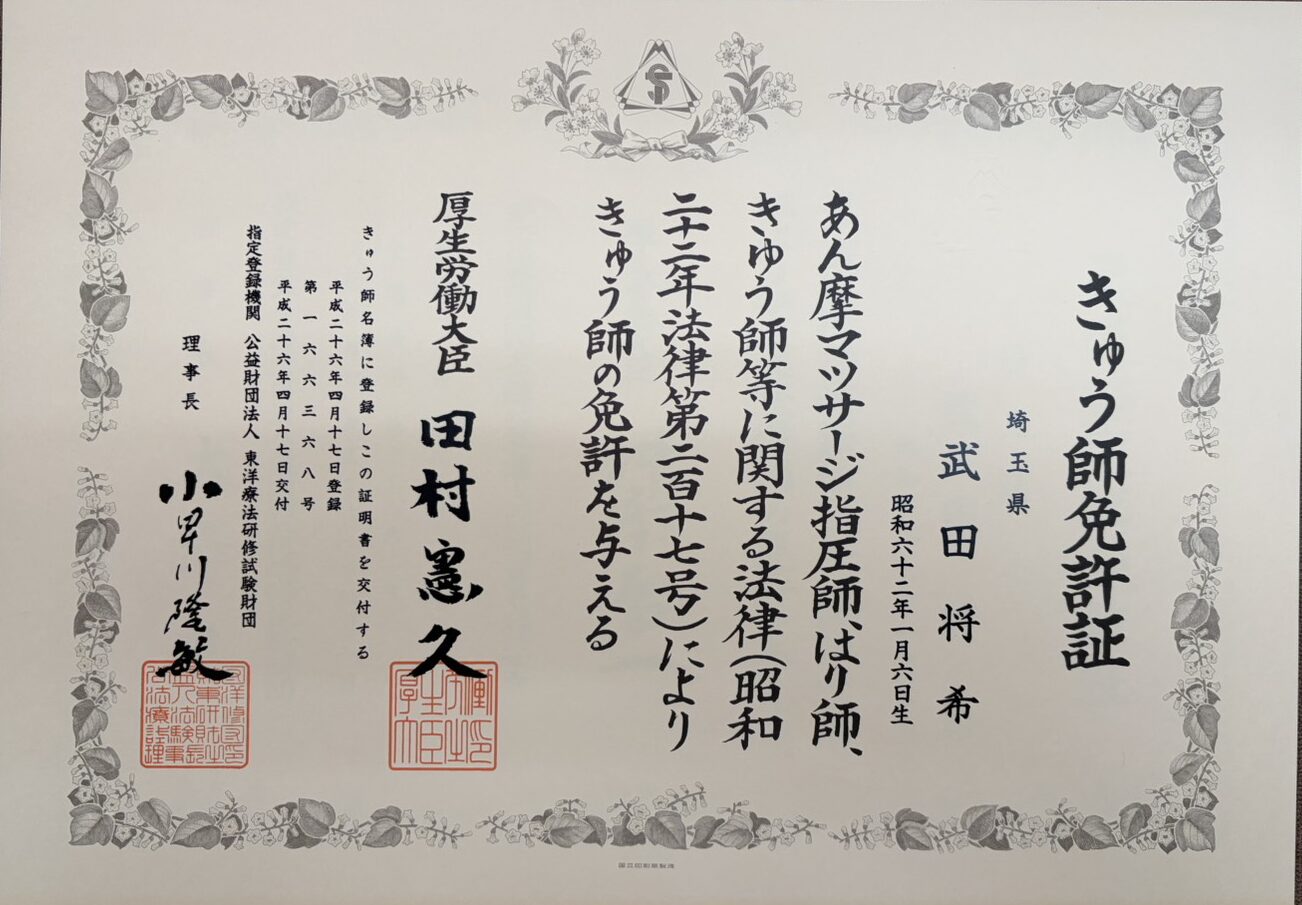 きゅう師免許証
埼玉県
武田将希
昭和六十二年一月六日生
あん摩マツサージ指圧師、はり師、
きゆう師等に関する法律（昭和
二十二年法律第二百十七号）により
きゅう師の免許を与える
厚生労働大臣 田村憲久
きゅう師名簿に登録しこの証明書を交付する
平成二十六年四月十七日登録
第一六六三六八号
平成二十六年四月十七日交付
指定登録機関 公益財団法人 東洋療法研修試験財団
理事長 小早川隆敏
国立印刷局製造